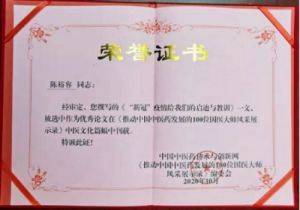 荣誉证书
陈裕春 同志：
经审定，您撰写的《“新冠”疫情给我们的启迪与教训》一文，
被选中作为优秀论文在《推动中国中医药发展的100位国医大师风采展
示录》中医文化篇幅中刊载。
特颁此证！
中国中医药传承与创新网
《推动中国中医药发展的100位国医大师
风采展示录》编委会
2020年10月